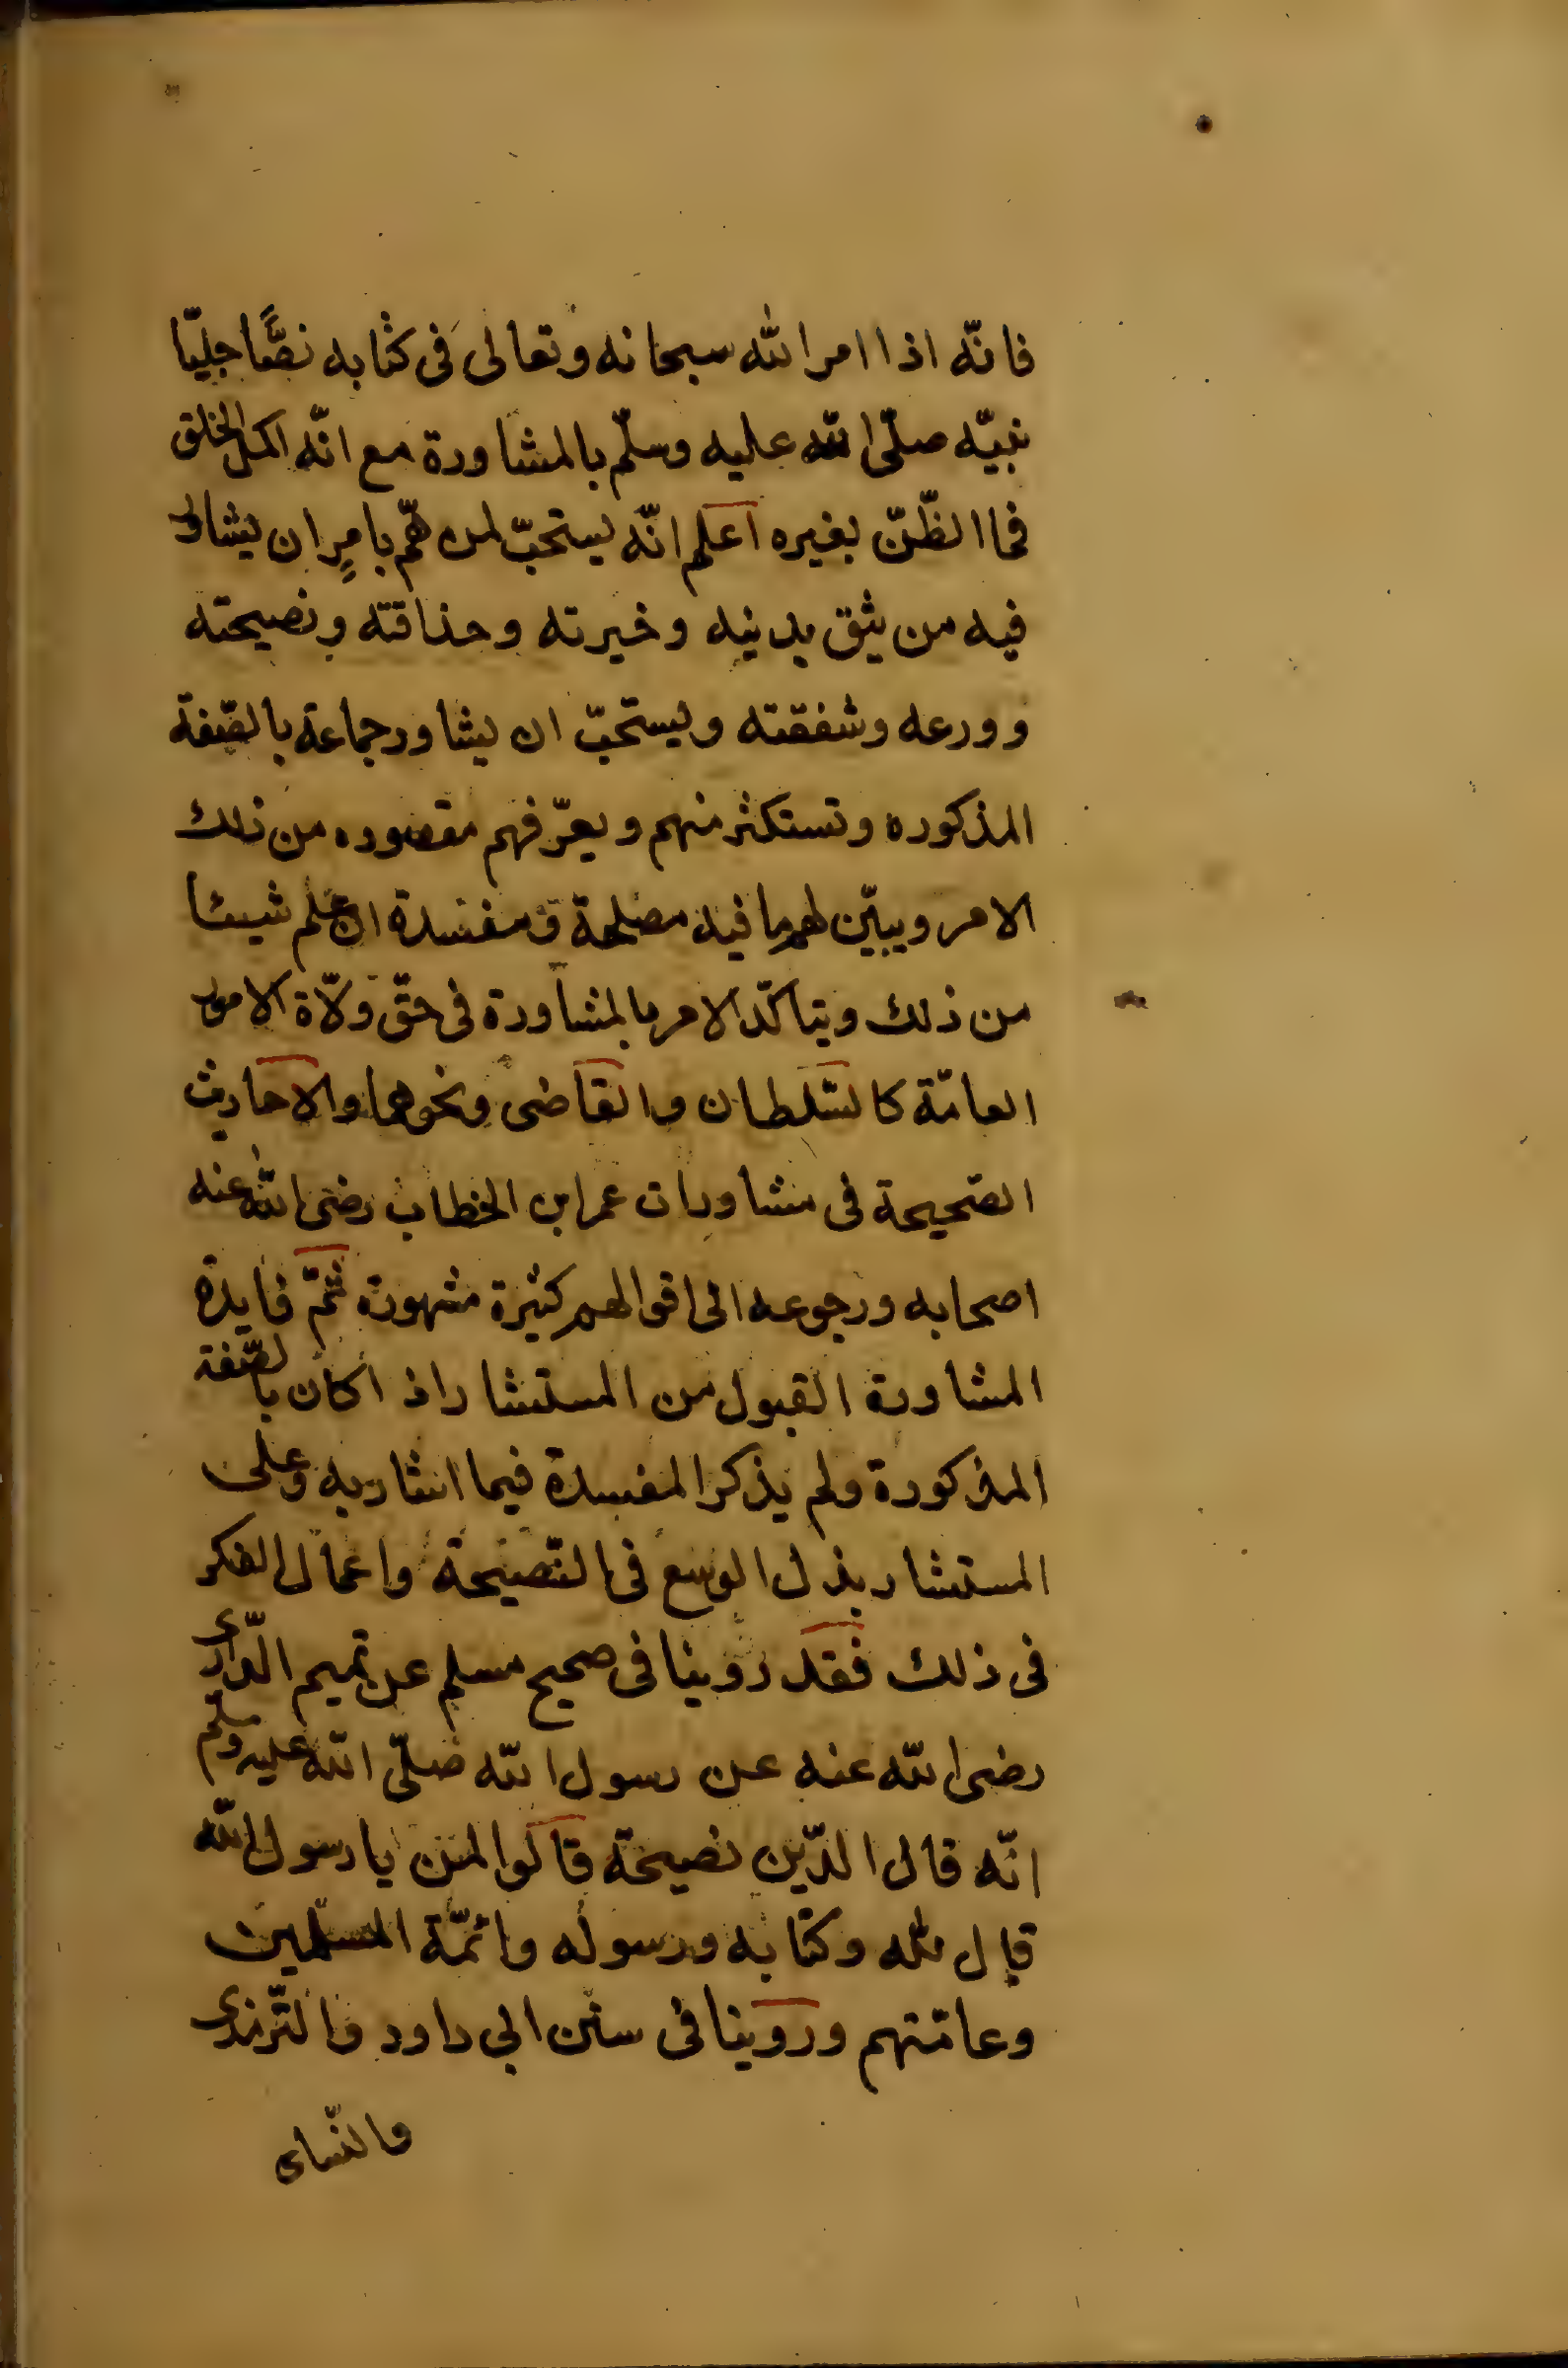 فانّه اذا امر الله سبحانه وتعالى فى كتابه نصًّا جليّا
نبيّه صلّى الله عليه وسلّم بالمشاورة مع انّه اكمل الخلق
فما الظّنّ بغيره اعلم انّه يستحبّ لمن همّ بامرٍ ان يشاور
فيه من يثق بدينه وخيرته وحذاقته ونصيحته
وورعه وشفقته ويستحبّ ان يشاور جماعة بالصّفة
المذكوره وتستكثر منهم ويعرّفهم مقصوده من ذلك
الامر ويبيّن لهم ما فيه مصلحة ومفسدة ان علم شيئا
من ذلك ويتاكّد الامر بالمشاورة فى حقّ ولاّة الامور
العامّة كالسّلطان والقاضى ونحوهما والاحاديث
الصّحيحة فى مشاورات عمر ابن الخطاب رضى الله عنه
اصحابه ورجوعه الى اقوالهم كثيرة مشهورة ثمّ فايدة
المشاورة القبول من المستشار اذا كان بالصّفة
المذكورة ولم يذكر المفسدة فيما اشار به وعلى
المستشار بذل الوسع فى النّصيحة واعمال الفكر
فى ذلك فقد روينا فى صحيح مسلم عن تميم الدّارى
رضى الله عنه عن رسول الله صلّى الله عليه وسلّم
انّه قال الدّين نصيحة قالوا لمن يا رسول الله
قال لله وكتابه ورسوله وائمّة المسلمين
وعامّتهم وروينا فى سنن ابى داود والتّرمذى
والنّساى